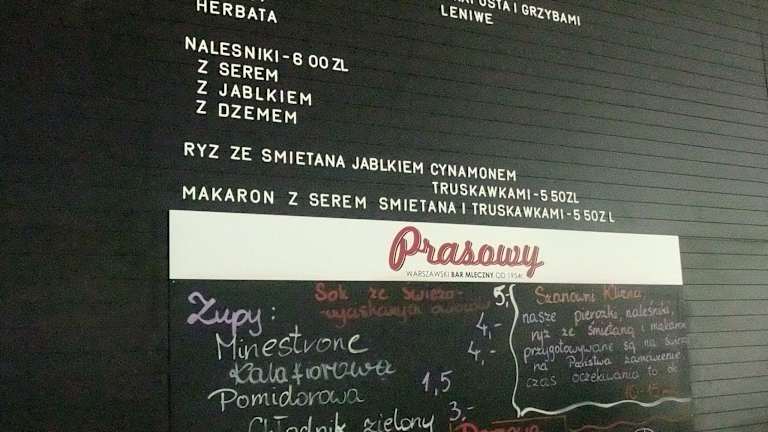 HERBATA
USTA I GRZYBAMI
LENIWE
NALESNIKI-6 00ZL
Z SEREM
Z JABLKIEM
Z DZEMEM
RYZ ZE SMIETANA JABLKIEM CYNAMONEM
TRUSKAWKAMI-5 50ZL
MAKARON Z SEREM SMIETANA I TRUSKAWKAMI-5 50Z L
Prasowy
WARSZAWSKI BAR MLECZNY OD 1954r.
Zupy:
Sok ze świeżo-
-wyciskanych owoców 5,-
Minestrone 4,-
Kalafiorowa 4,-
Pomidorowa 1,5
Chłodnik zielony 3,-
Szanowni Klienci,
nasze pierożki, naleśniki,
ryż ze śmietaną i makaron
przygotowywane są na świeżo
na Państwa zamówienie
czas oczekiwania to ok
10-15 min